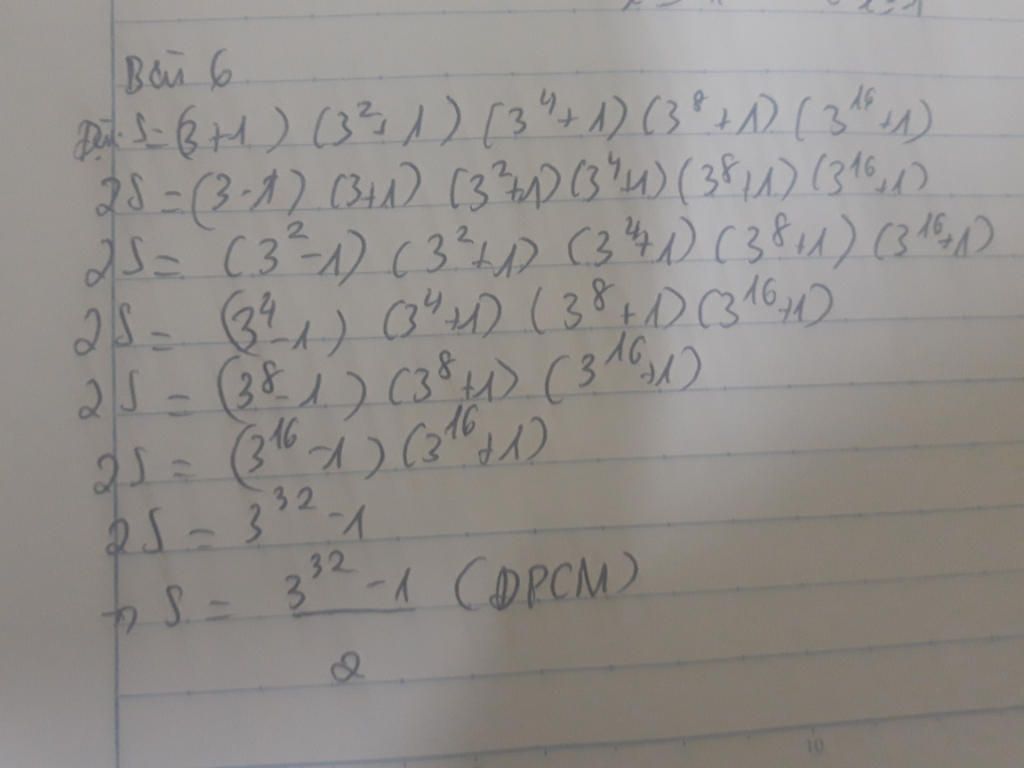 Bài 6
Đặt S = (3+1) (3²+1) (3⁴+1) (3⁸+1) (3¹⁶+1)
2S = (3-1) (3+1) (3²+1) (3⁴+1) (3⁸+1) (3¹⁶+1)
2S = (3²-1) (3²+1) (3⁴+1) (3⁸+1) (3¹⁶+1)
2S = (3⁴-1) (3⁴+1) (3⁸+1) (3¹⁶+1)
2S = (3⁸-1) (3⁸+1) (3¹⁶+1)
2S = (3¹⁶-1) (3¹⁶+1)
2S = 3³²-1
→ S = 3³²-1 (ĐPCM)
2
10